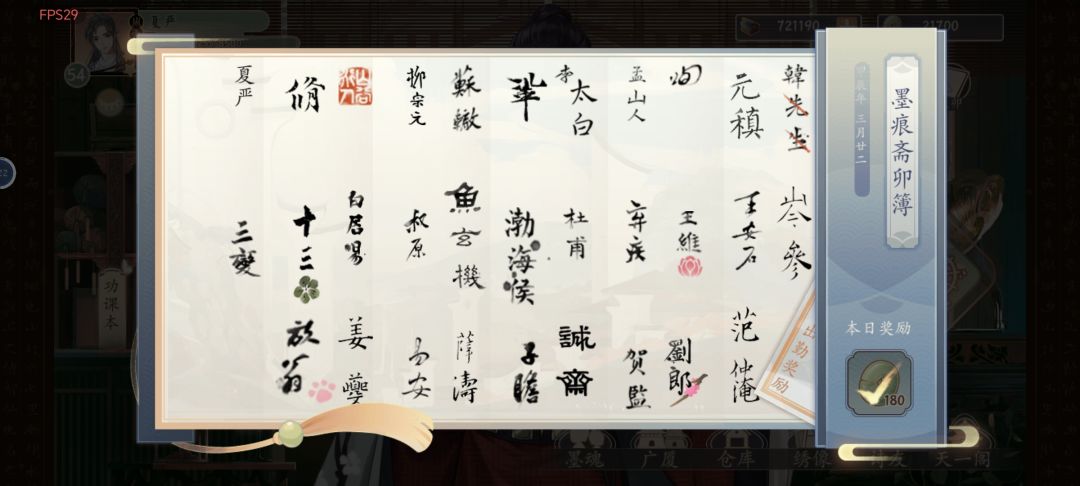 FPS29
夏严
54
721190
21700
墨痕斋卯簿
甲辰年 三月廿二
韓先生
岑參
元稹
王安石
范仲淹
王維
劉郎
孟山人
辛疾
贺監
李太白
杜甫
誠齋
鞏
渤海侯
子瞻
蘇轍
魚玄機
薛濤
柳宗元
叔原
易安
白居易
姜夔
脩
十三
放翁
夏严
三變
出勤奖励
本日奖励
180
功课本
墨魂
广厦
仓库
绣像
诗友
天一阁
22